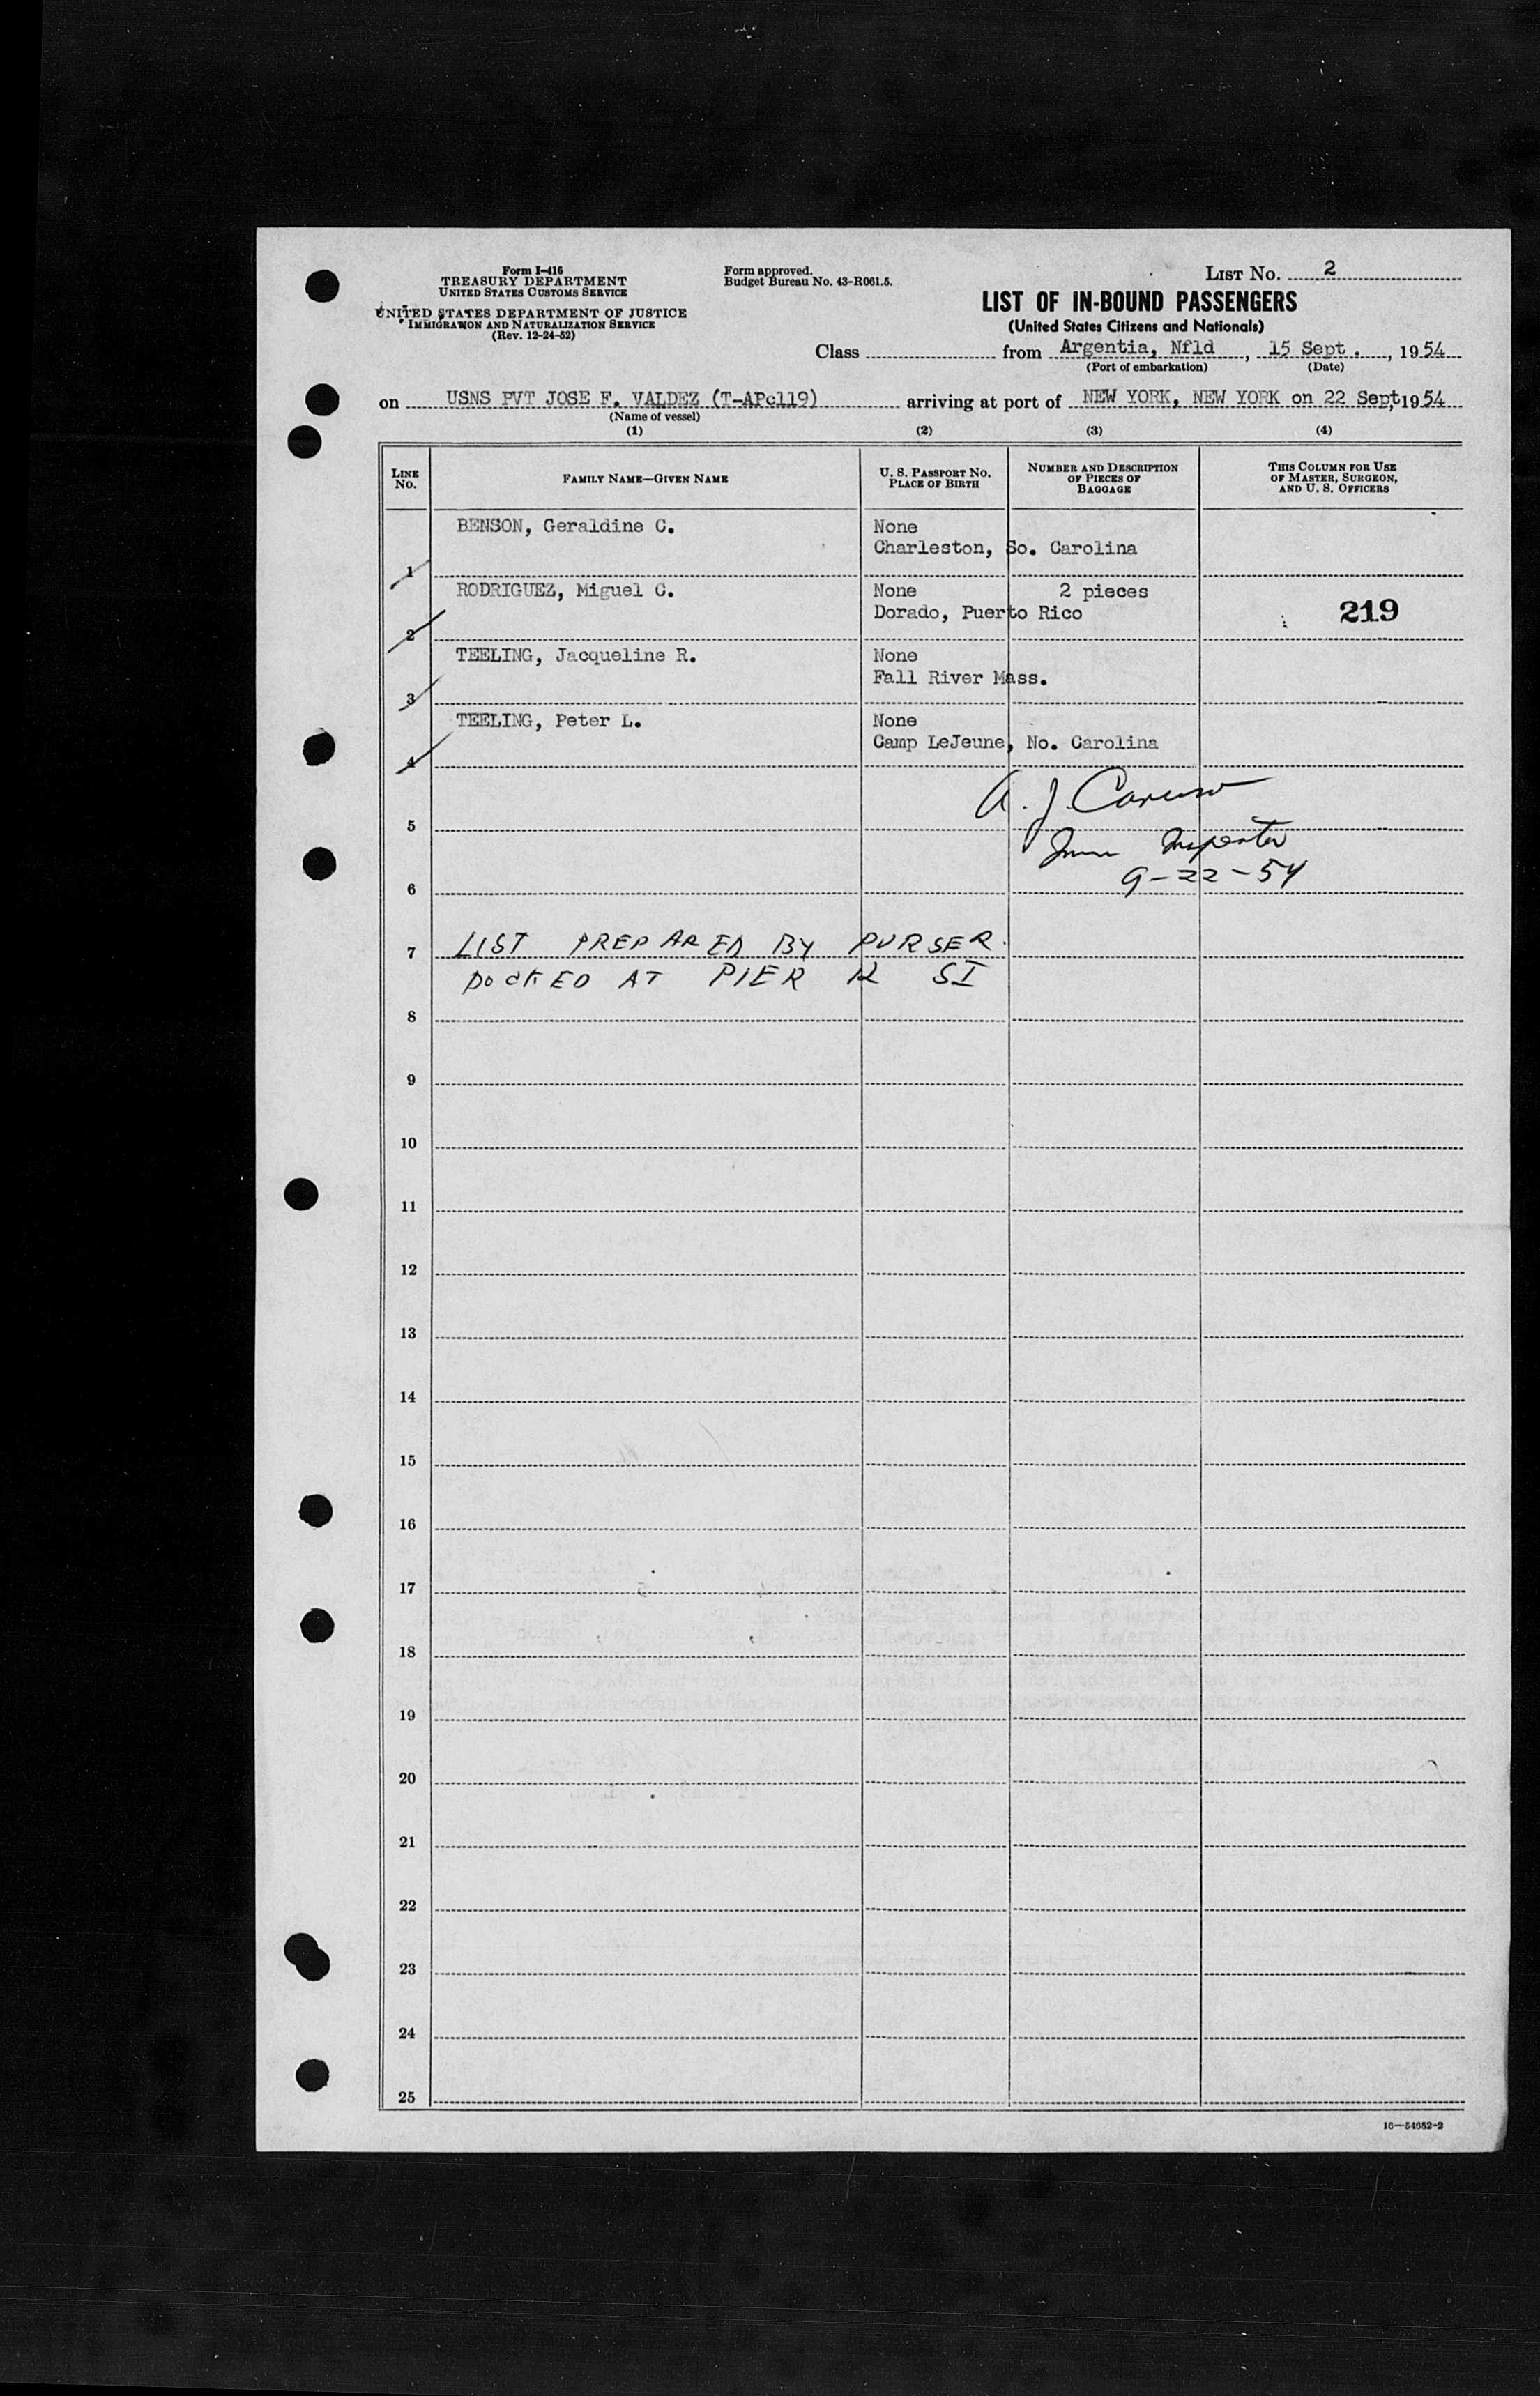 Form I-416
TREASURY DEPARTMENT
UNITED STATES CUSTOMS SERVICE
UNITED STATES DEPARTMENT OF JUSTICE
IMMIGRATION AND NATURALIZATION SERVICE
(Rev. 12-24-52)
Form approved.
Budget Bureau No. 43-R061.5.
LIST No. 2
LIST OF IN-BOUND PASSENGERS
(United States Citizens and Nationals)
Class from Argentia, Nfld, 15 Sept., 1954
(Port of embarkation) (Date)
on USNS PVT JOSE F. VALDEZ (T-APc119) arriving at port of NEW YORK, NEW YORK on 22 Sept, 1954
(Name of vessel)
(1) (2) (3) (4)
LINE No. FAMILY NAME—GIVEN NAME U. S. PASSPORT NO. PLACE OF BIRTH NUMBER AND DESCRIPTION OF PIECES OF BAGGAGE THIS COLUMN FOR USE OF MASTER, SURGEON, AND U. S. OFFICERS
BENSON, Geraldine C. None
Charleston, So. Carolina
1
RODRIGUEZ, Miguel C. None 2 pieces
Dorado, Puerto Rico 219
2
TEELING, Jacqueline R. None
Fall River Mass.
3
TEELING, Peter L. None
Camp LeJeune, No. Carolina
4
A. J. Caruso
5
Imm Inspector
9-22-54
6
7 LIST PREPARED BY PURSER.
DOCKED AT PIER 12 SI
8
9
10
11
12
13
14
15
16
17
18
19
20
21
22
23
24
25
16—54652-2